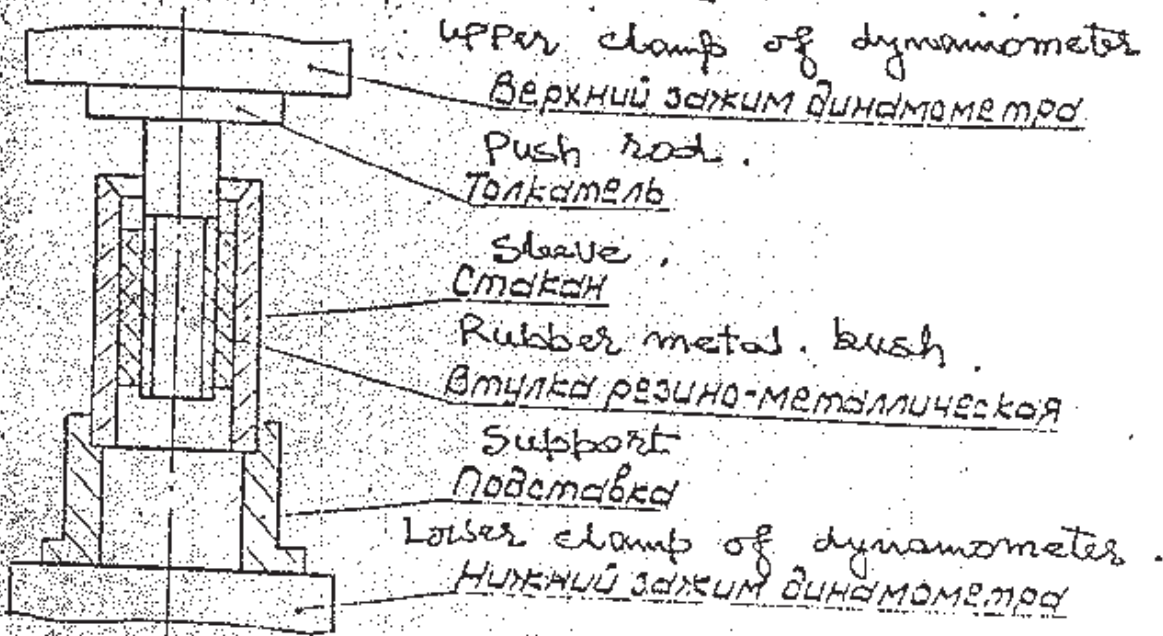 Upper clamp of dynamometer
Верхний зажим динамометра
Push rod.
Толкатель
Sleeve.
Стакан
Rubber metal. bush.
Втулка резино-металлическая
Support
Подставка
Lower clamp of dynamometer.
Нижний зажим динамометра